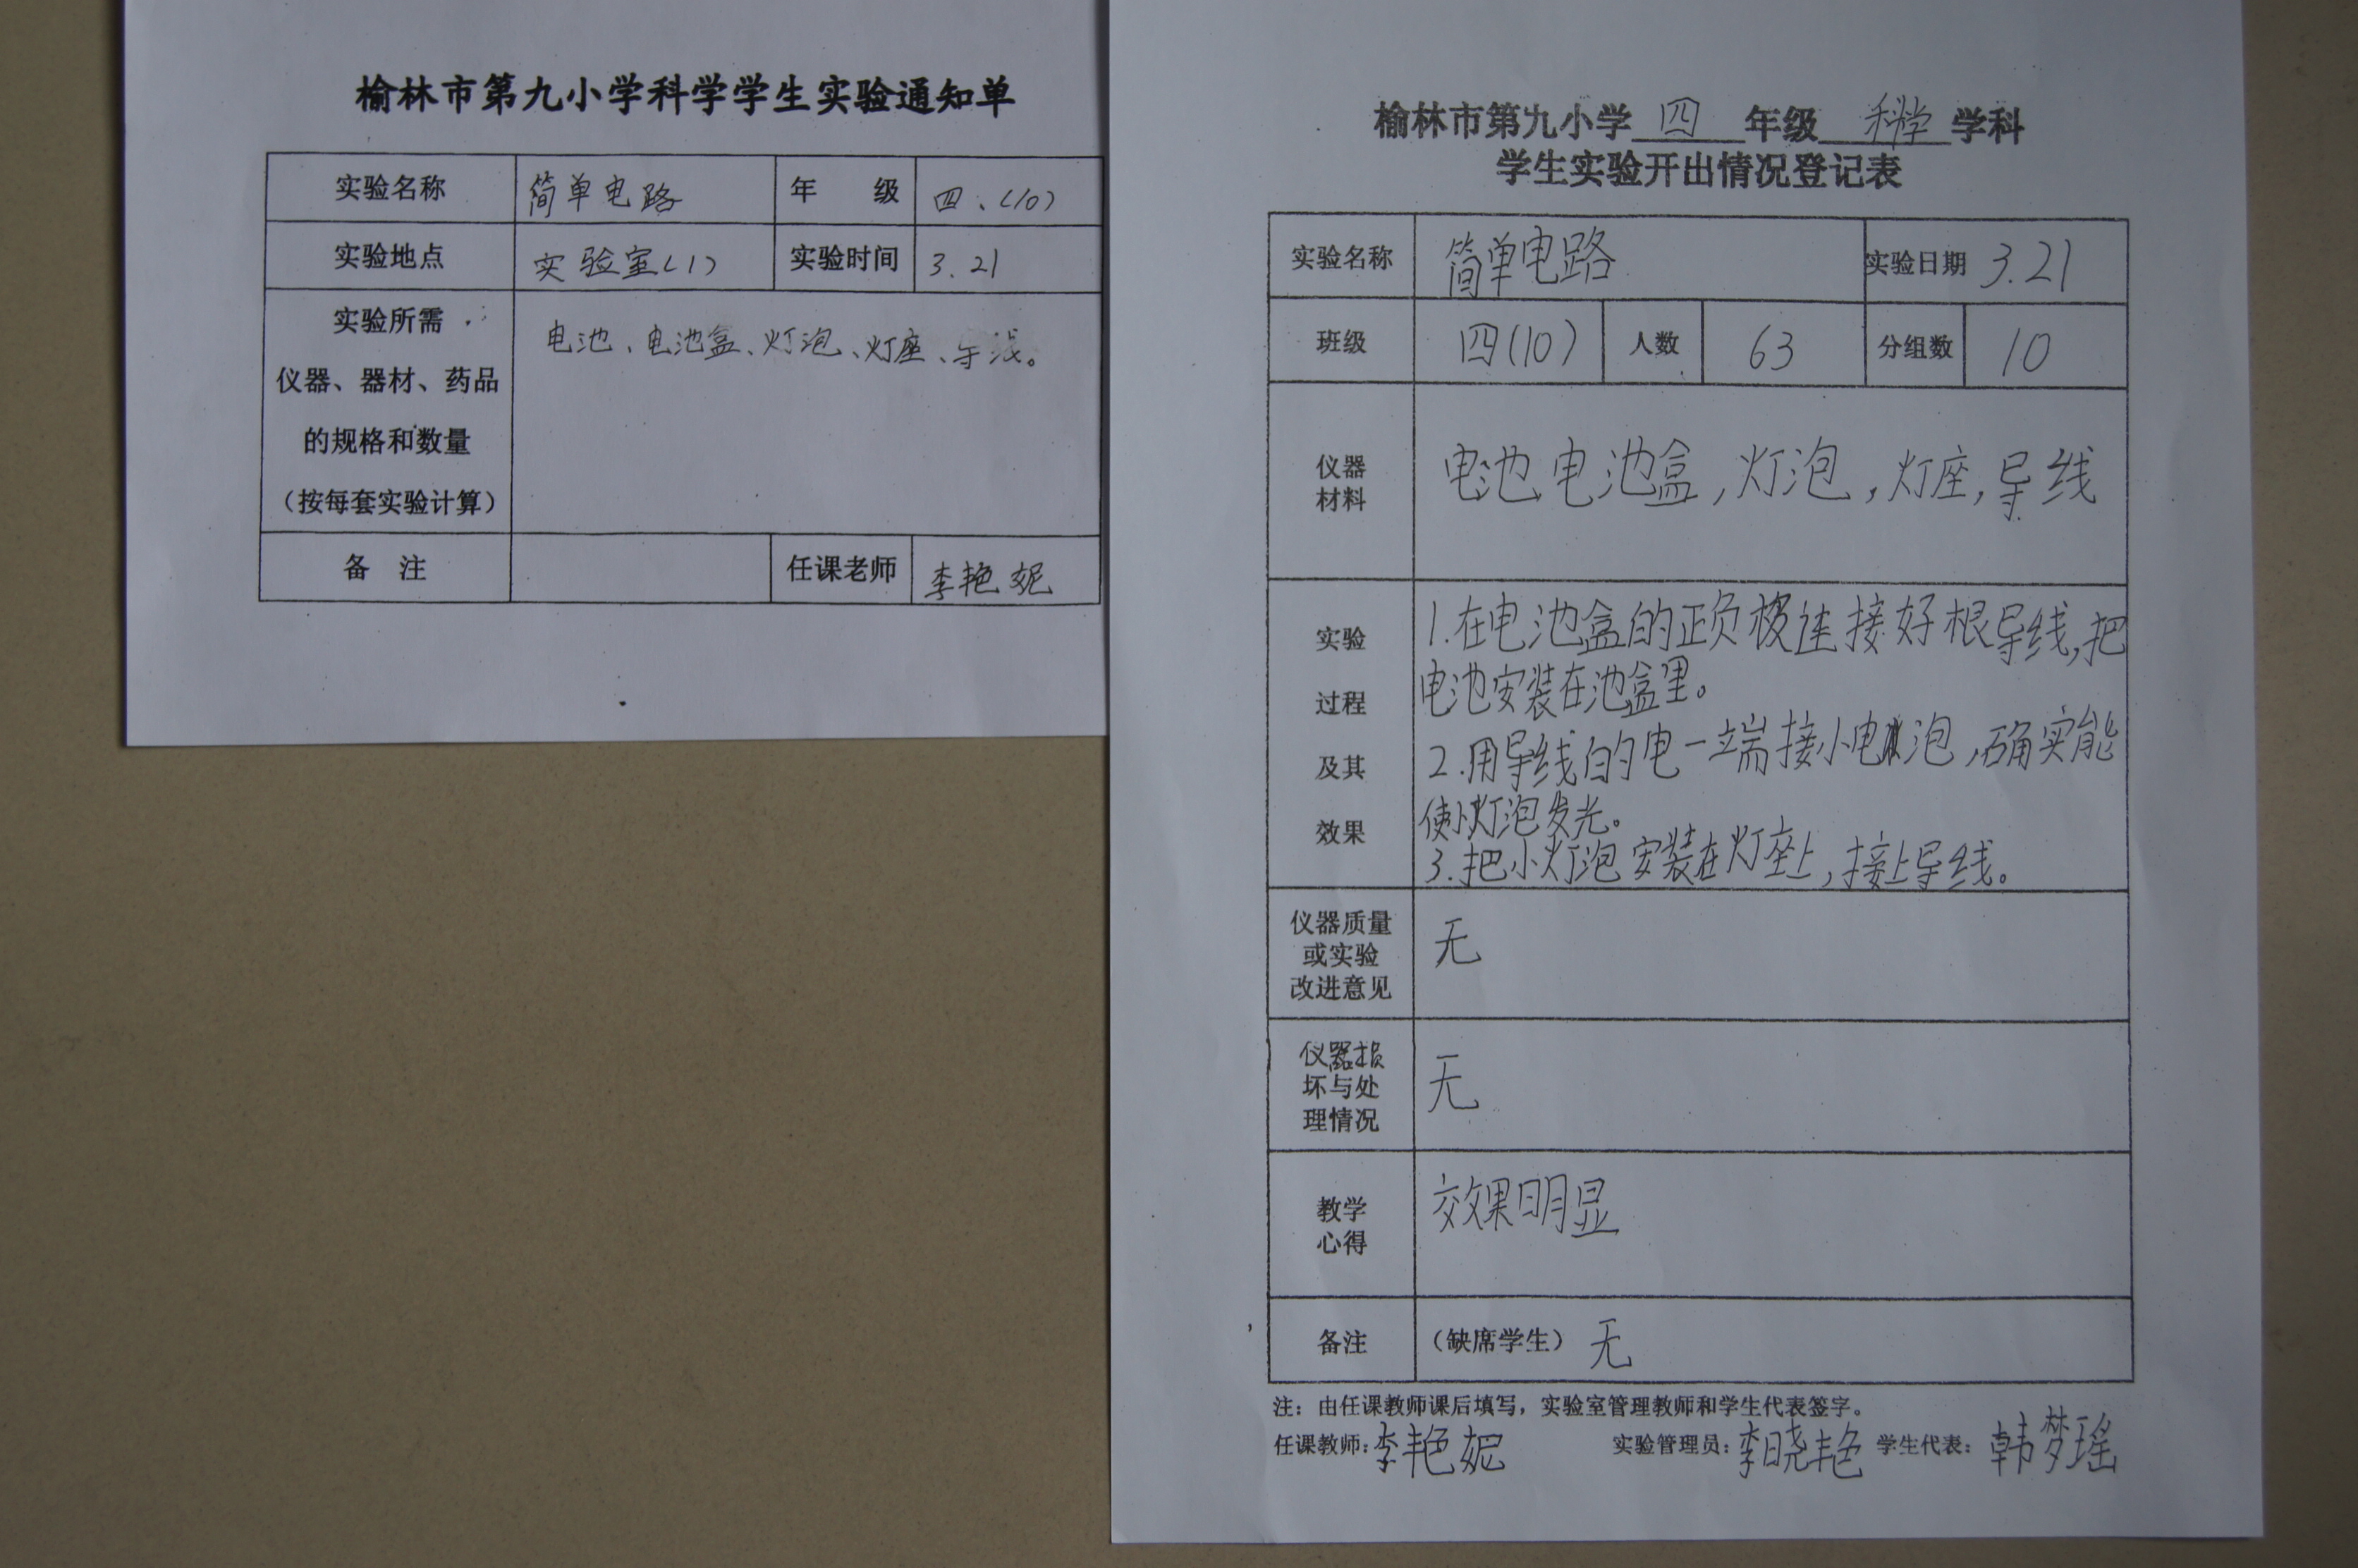 榆林市第九小学科学学生实验通知单
实验名称 简单电路 年 级 四、(10)
实验地点 实验室(1) 实验时间 3.21
实验所需
仪器、器材、药品
的规格和数量
(按每套实验计算)
电池、电池盒、灯泡、灯座、导线。
备 注 任课老师 李艳妮
榆林市第九小学 四 年级 科学 学科
学生实验开出情况登记表
实验名称 简单电路 实验日期 3.21
班级 四(10) 人数 63 分组数 10
仪器
材料
电池 电池盒,灯泡,灯座,导线
实验
过程
及其
效果
1.在电池盒的正负极连接好根导线,把
电池安装在池盒里。
2.用导线的电一端接小电泡,确实能
使小灯泡发光。
3.把小灯泡安装在灯座上,接上导线。
仪器质量
或实验
改进意见
无
仪器损
坏与处
理情况
无
教学
心得
效果明显
备注 (缺席学生) 无
注:由任课教师课后填写,实验室管理教师和学生代表签字。
任课教师:李艳妮 实验管理员:李晓艳 学生代表:韩梦瑶